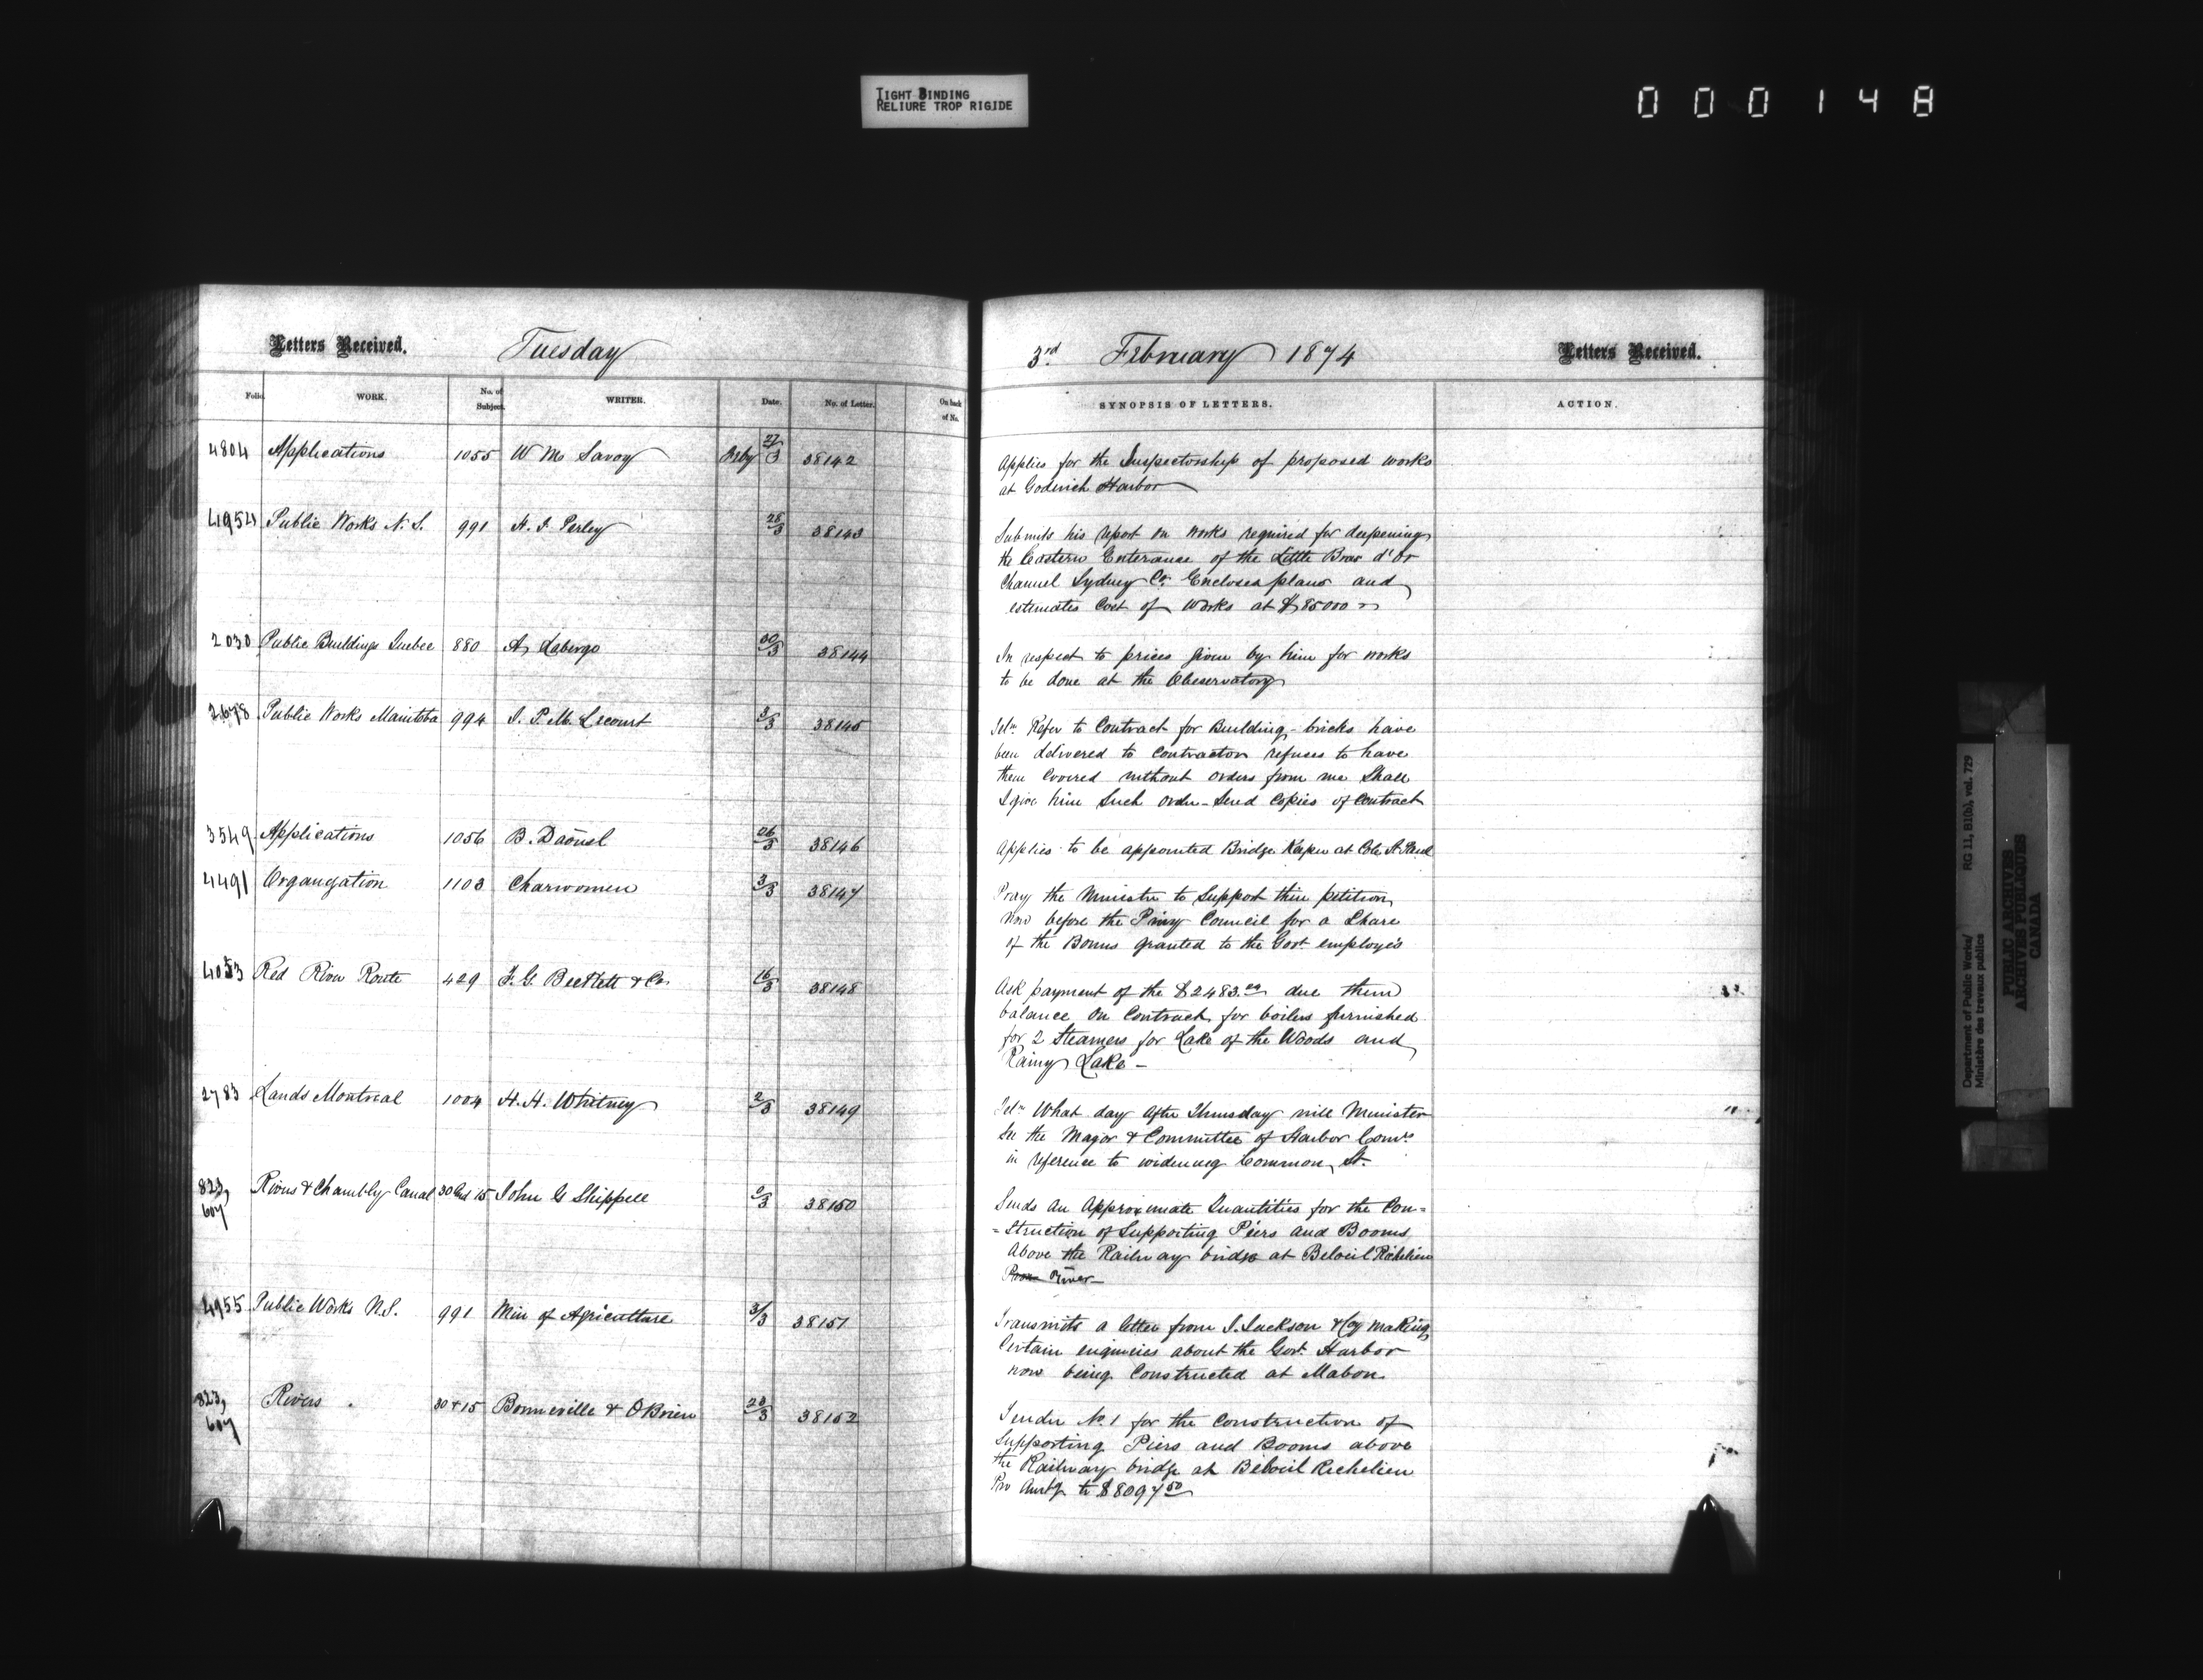 TIGHT BINDING
RELIURE TROP RIGIDE
000148
Letters Received. Tuesday
3rd February 1874 Letters Received.
Folio. WORK. No. of Subject. WRITER. Date. No. of Letter. On back of No.
SYNOPSIS OF LETTERS. ACTION.
4804 Applications 1055 W Mc Savoy 27/3 38142
Applies for the Inspectorship of proposed works
at Goderich Harbor
4954 Public Works N.S. 991 H. F. Perley 28/3 38143
Submits his report on works required for deepening
the Eastern Enterance of the Little Bras d'Or
Channel Sydney Co. Encloses plans and
estimates Cost of works at $85000
2030 Public Buildings Quebec 880 A. Laberge 30/3 38144
In respect to prices given by him for works
to be done at the Observatory
2678 Public Works Manitoba 994 J. P. M. Lecourt 3/3 38145
Telm Refer to Contract for Building - bricks have
been delivered to Contractor refuses to have
them Covered without orders from me Shall
I give him Such order - Send Copies of Contract
3549 Applications 1056 B. Daoust 26/3 38146
Applies to be appointed Bridge Keeper at Cote St. Paul
4491 Organization 1103 Charwomen 3/3 38147
Pray the Minister to Support their petition
now before the Privy Council for a Share
of the Bonus granted to the Govt employés
4053 Red River Route 429 F. G. Beckett & Co. 16/3 38148
Ask payment of the $2483. due them
balance on Contract for boilers furnished
for 2 Steamers for Lake of the Woods and
Rainy Lake -
2783 Lands Montreal 1004 H. H. Whitney 2/3 38149
Telm What day after Thursday will Minister
See the Mayor & Committee of Harbor Comrs
in reference to widening Common St.
823, 607 Rivers & Chambly Canal 30 and 15 John G Shippell 38150
Sends an Approximate Quantities for the Con=
=struction of Supporting Piers and Booms
Above the Railway bridge at Belœil Richlieu
River -
4955 Public Works N.S. 991 Min of Agriculture 3/3 38151
Transmits a letter from J. Jackson & Coy making
Certain enquiries about the Govt. Harbor
now being Constructed at Mabou.
823, 607 Rivers 30 & 15 Bonneville & O'Brien 23/3 38152
Tender No. 1 for the Construction of
Supporting Piers and Booms above
the Railway bridge at Belœil Richelieu
Riv Amtg to $8097.50
Department of Public Works/ RG 11, B1(b), vol. 729
Ministère des travaux publics
PUBLIC ARCHIVES
ARCHIVES PUBLIQUES
CANADA